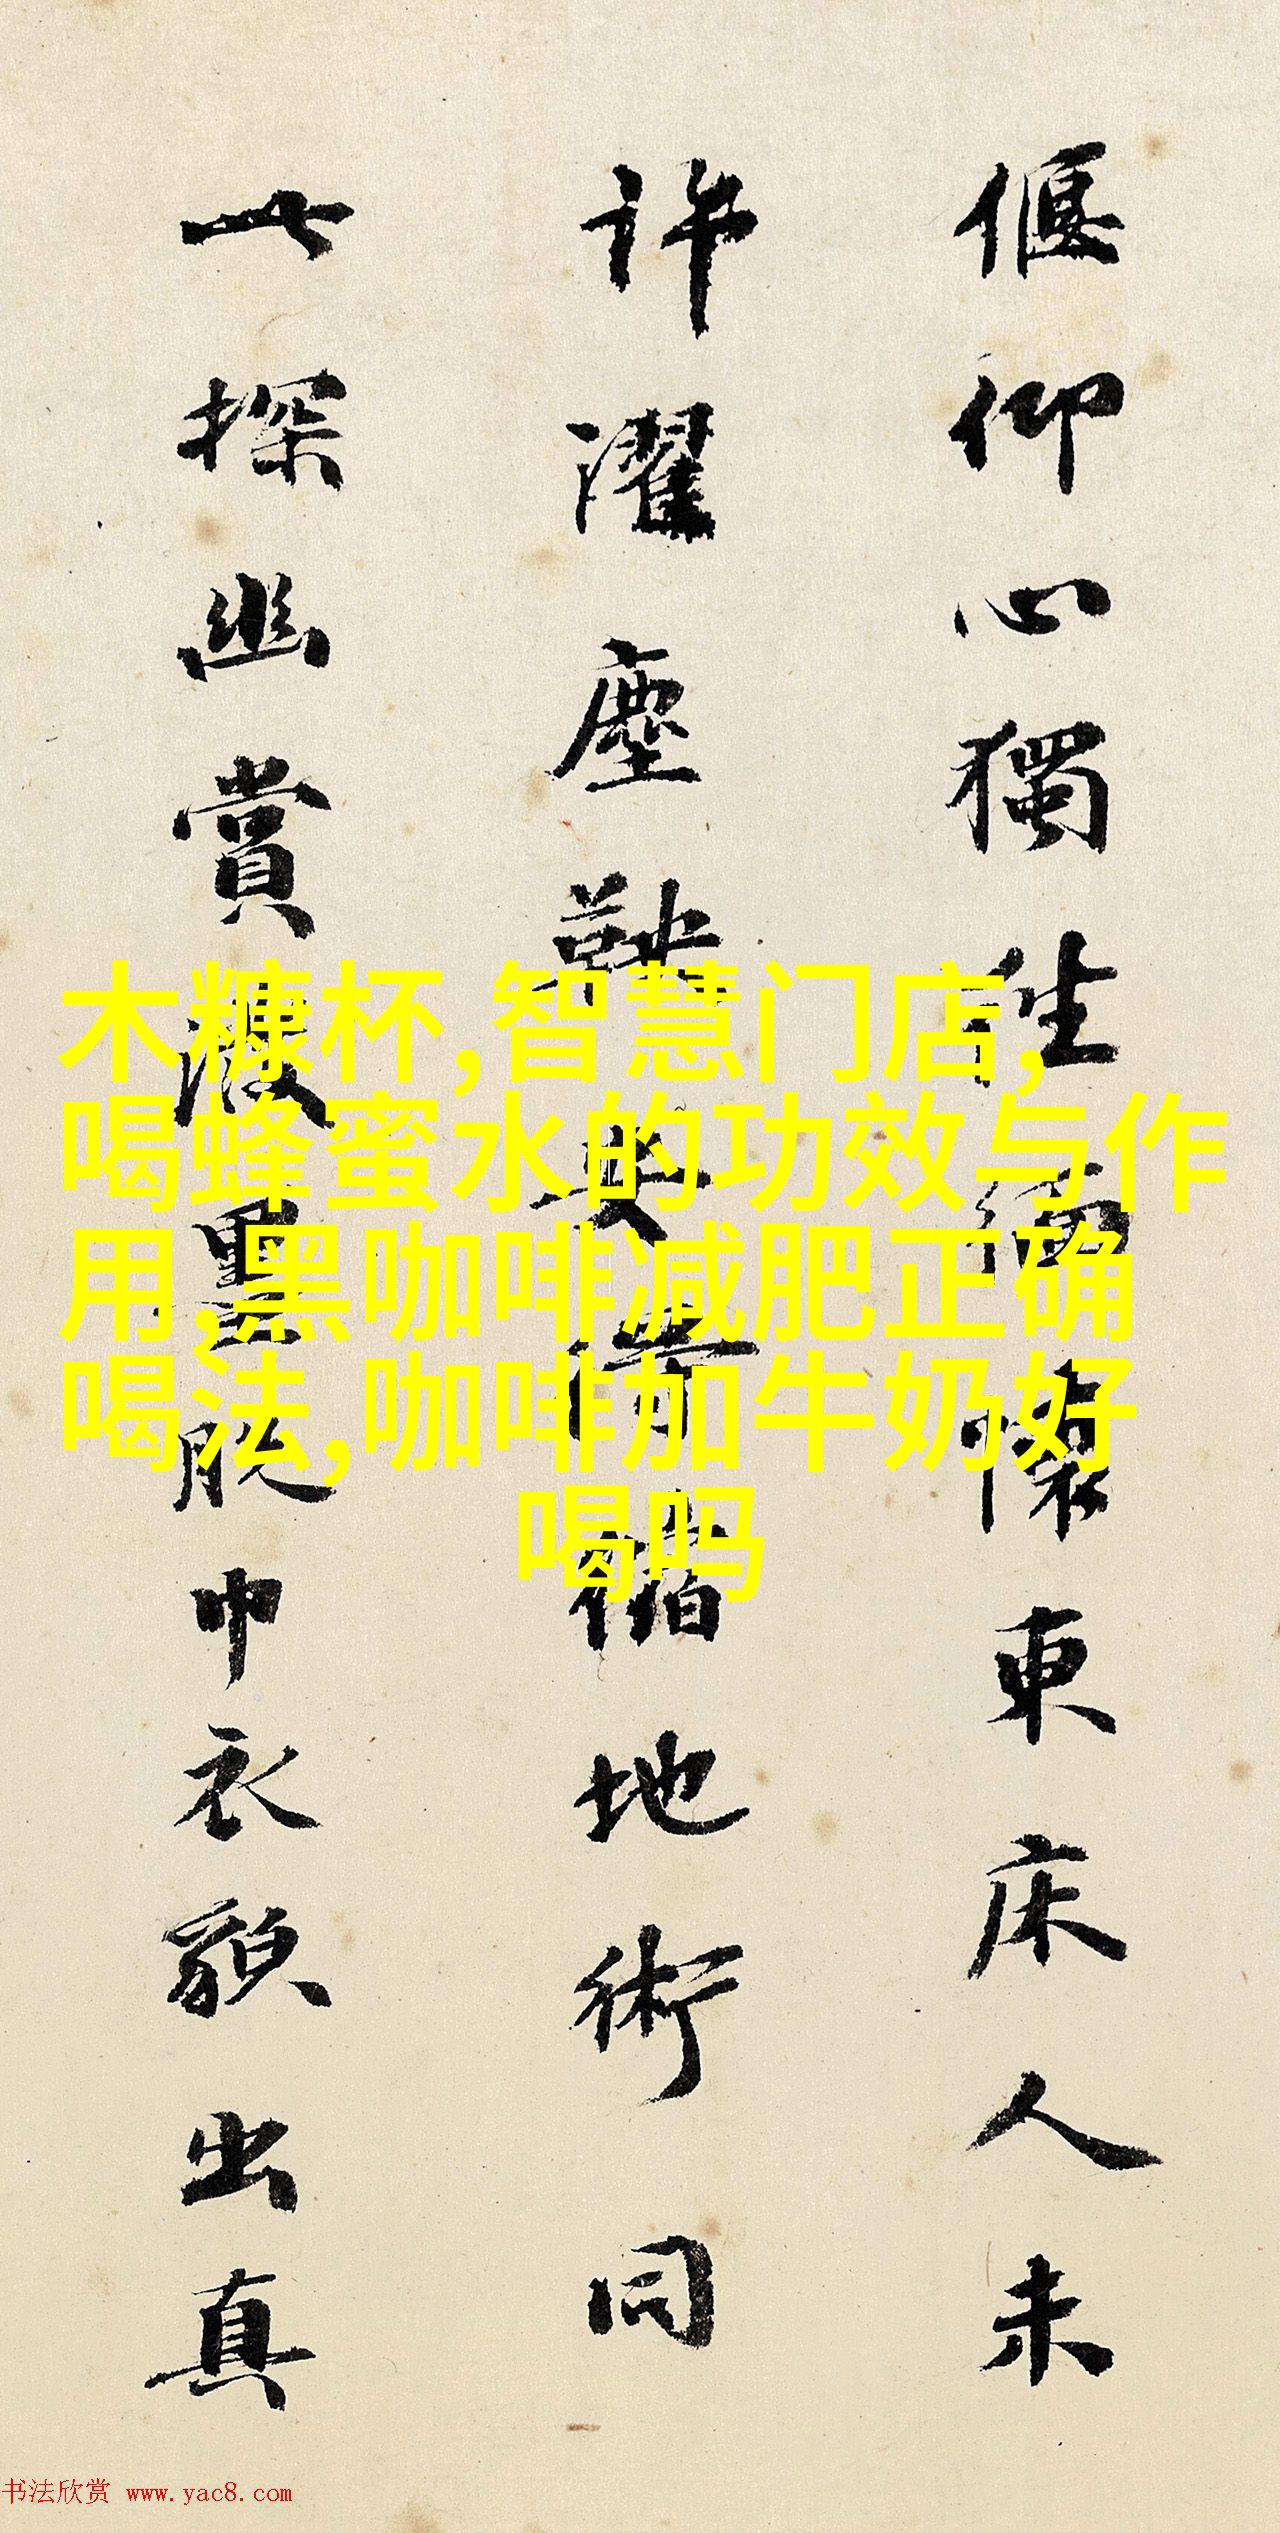 偃仰心獨往緬懷東床人未
許濯塵鞅要待循地術同
一探幽賞潑墨脫巾衣貌出真
木糠杯,智慧门店,
喝蜂蜜水的功效与作
用,黑咖啡减肥正确
喝法,咖啡加牛奶好
喝吗
书法欣赏 www.yac8.com